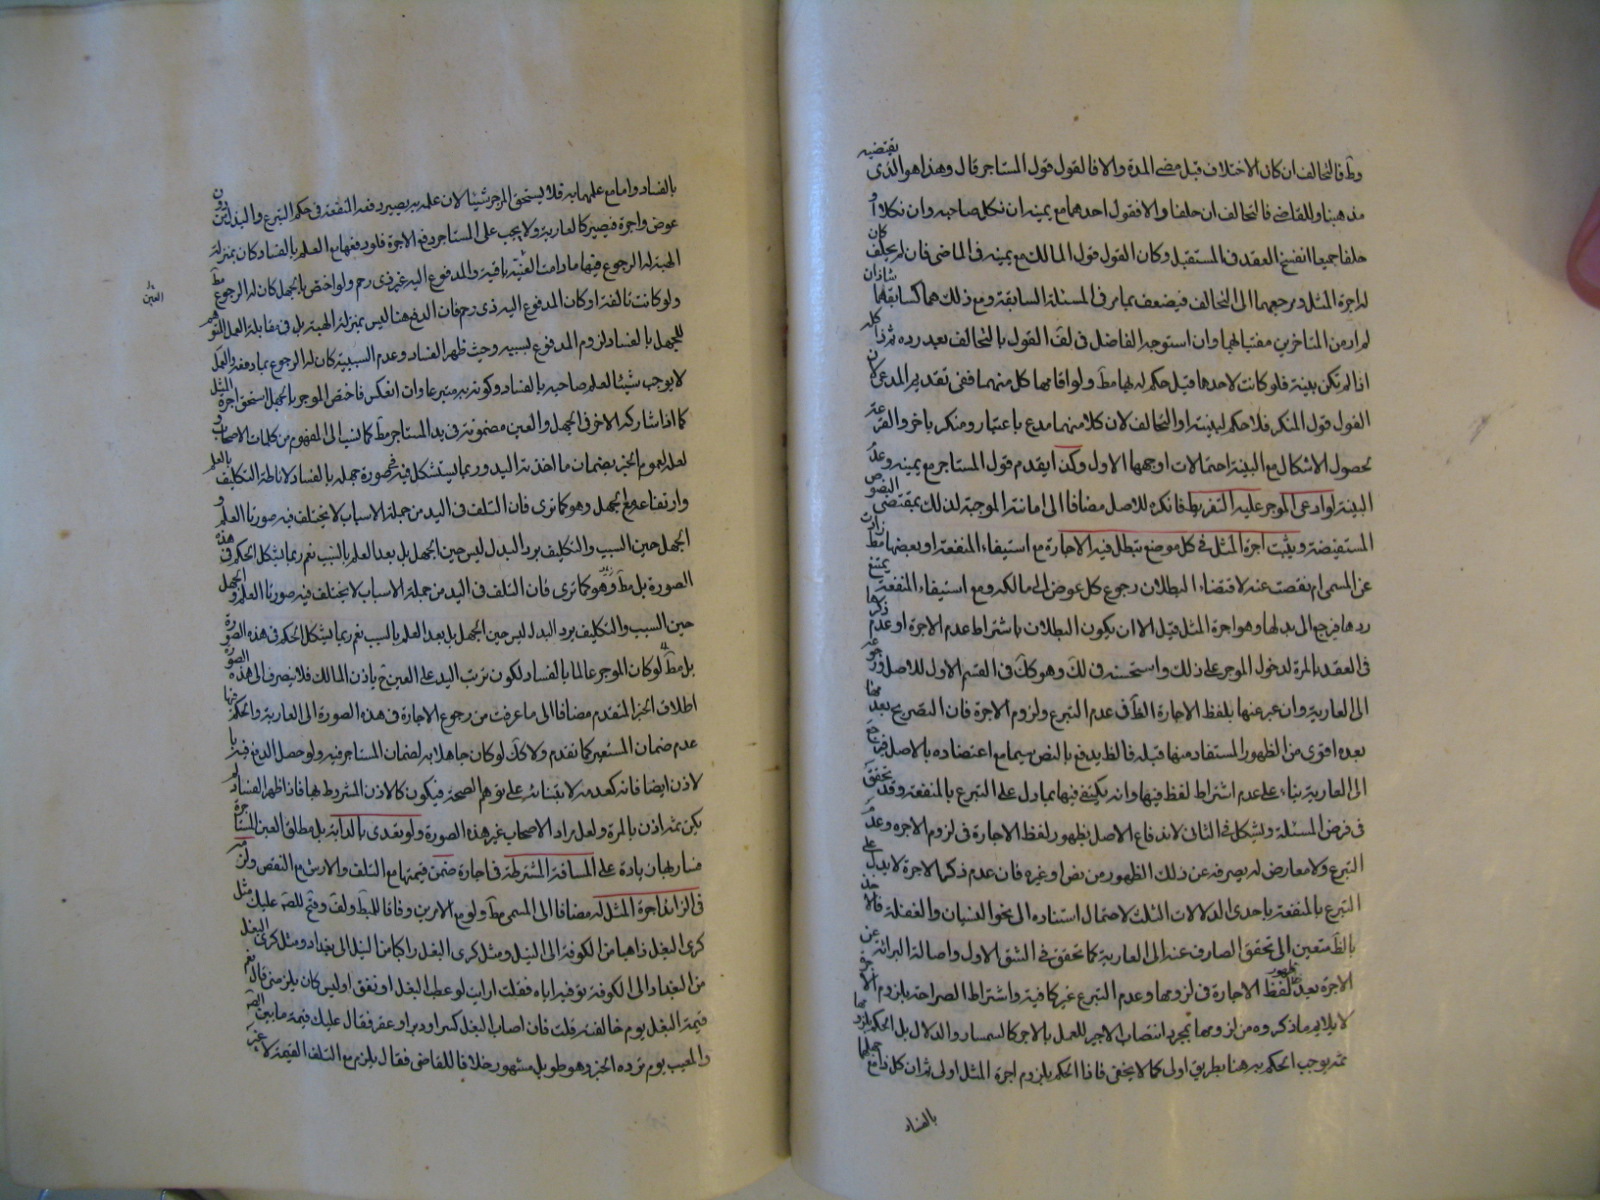 وط فالتحالف ان كان الاختلاف قبل مضى المدة والا فالقول قول المستاجر قال وهذا هو الذى يقتضيه
مذهبنا وللقاضى فالتحالف ان حلفا والا فقول احدهما مع يمينه ان نكل صاحبه وان نكلا او
حلفا جميعا انفسخ العقد فى المستقبل وكان القول قول المالك مع يمينه فى الماضى فان لم يحلف كان
له اجرة المثل ومرجعهما الى التحالف فيضعف بما مر فى المسئلة السابقة ومع ذلك هما كسابقهما شاذان
لم ار من المتاخرين مفتيا بهما وان استوجه الفاضل فى لف القول بالتحالف بعيد رده ثم ذا كله
اذا لم تكن بينة فلو كانت لاحدهما قيل حكم له بها مط ولو اقامها كل منهما ففى تقديم المدعى لان
القول قول المنكر فلا حكم لبينته او التحالف لان كلا منهما مدع باعتبار ومنكر باخر والقرعة
لحصول الاشكال مع البينة احتمالات اوجهها الاول وكذا يقدم قول المستاجر مع يمينه وعدم
البينة لو ادعى الموجر عليه التفريط فانكره للاصل مضافا الى امانته الموجبة لذلك بمقتضى النصوص
المستفيضة ويثبت اجرة المثل فى كل موضع تبطل فيه الاجارة مع استيفاء المنفعة او بعضها مط زادت
عن المسمى ام نقصت عنه لاقتضاء البطلان رجوع كل عوض الى مالكه ومع استيفاء المنفعة يمتنع
ردها فيرجع الى بدلها وهو اجرة المثل قيل الا ان يكون البطلان باشتراط عدم الاجرة او عدم ذكرها
فى العقد بالمرة لدخول الموجر على ذلك واستحسنه فى لك وهو كك فى القسم الاول للاصل ورجوعه
الى العارية وان عبر عنها بلفظ الاجارة الظ فى عدم التبرع ولزوم الاجرة فان التصريح بعدمها
بعده اقوى من الظهور المستفاد منها قبله فالظ يدفع بالنص سيما مع اعتضاده بالاصل فيرجع
الى العارية بناء على عدم اشتراط لفظ فيها وانه يكتفى فيها بما دل على التبرع بالمنفعة وقد تحقق
فى فرض المسئلة ويشكل فى الثانى لاندفاع الاصل بظهور لفظ الاجارة فى لزوم الاجرة وعدم
التبرع ولا معارض له يصرفه عن ذلك الظهور من نص او غيره فان عدم ذكر الاجرة لا يدل على
التبرع بالمنفعة باحدى الدلالات الثلث لاحتمال استناده الى نحو النسيان والغفلة فالاخذ
بالظ متعين الى تحقق الصارف عنه الى العارية كما تحقق فى الشق الاول واصالة البرائة عن
الاجرة بعد ظهور لفظ الاجارة فى لزومها وعدم التبرع غير كافية واشتراط الصراحة بلزوم الاجرة
لا يلايم ما ذكروه من لزومها بمجرد انتصاب الاجير للعمل بالاجر كالسمسار والدلال بل الحكم بلزومها
ثمه يوجب الحكم به هنا بطريق اولى كما لا يخفى فاذا الحكم بلزوم اجرة المثل اولى ثم ان كل ذا مع جهلهما
بالفساد
بالفساد واما مع علمهما به فلا يستحق الموجر شيئا لان علمه به يصير دفعه المنفعة فى حكم التبرع والبدل بدون
عوض واجرة فيصير كالعارية ولا يجب على المستاجر دفع الاجرة فلو دفعها مع العلم بالفساد كان بمنزلة
الهبة له الرجوع فيها مادامت العين باقية والمدفوع اليه غير ذى رحم ولو اختص بالجهل كان له الرجوع مط
العين
ولو كانت تالفة او كان المدفوع اليه ذى رحم فان الدفع هنا ليس بمنزلة الهبة بل فى مقابلة العمل لتوهم
للجهل بالفساد لزوم المدفوع بسببه وحيث ظهر الفساد وعدم السببية كان له الرجوع بما دفعه والعمل
لا يوجب شيئا لعلم صاحبه بالفساد وكونه به متبرعا وان انعكس فاختص الموجر بالجهل استحق اجرة المثل
كما اذا شاركه الاخر فى الجهل والعين مضمونة فى يد المستاجر مط كما نسب الى المفهوم من كلمات الاصحاب و
لعله لعموم الخبر بضمان ما اخذته اليد وربما يستشكل فيه فى صورة جهله بالفساد لاناطة التكاليف بالعلم
وارتفاعها مع الجهل وهو كما ترى فان التلف فى اليد من جملة الاسباب لا يختلف فيه صورتا العلم و
الجهل حين السبب والتكليف برد البدل ليس حين الجهل بل بعد العلم بالسبب نعم ربما يشكل الحكم فى هذه
الصورة بل مط وهو كما ترى فان التلف فى اليد من جملة الاسباب لا يختلف فيه صورتا العلم والجهل
حين السبب والتكليف برد البدل ليس حين الجهل بل بعد العلم بالسبب نعم ربما يشكل الحكم فى هذه الصورة
بل مط لو كان الموجر عالما بالفساد لكون ترتب اليد على العين ح باذن المالك فلا ينصرف الى هذه الصورة
اطلاق الخبر المتقدم مضافا الى ما عرفت من رجوع الاجارة فى هذه الصورة الى العارية والحكم فيها
عدم ضمان المستعير كما تقدم ولا كك لو كان جاهلا به لضمان المستاجر فيه ولو حصل الدفع فيه با
لاذن ايضا فانه كعدمه لابتنائه على توهم الصحة فيكون كالاذن المشروط بها فاذا ظهر الفساد لم
يكن ثمه اذن بالمرة ولعل مراد الاصحاب غير هذه الصورة ولو تعدى بالدابة بل مطلق العين المستاجرة
فسار بها زيادة على المسافة المشترطة فى اجارة ضمن قيمتها مع التلف والارش مع النقص ولزمه
فى الزائد اجرة المثل له مضافا الى المسمى مط ولو مع الارش وفاقا للمبط ولف وفتح للصه عليك مثل
كرى البغل ذاهبا من الكوفة الى النيل ومثل كرى البغل راكبا من النيل الى بغداد ومثل كرى البغل
من البغداد الى الكوفة توفيه اياه فقلت ارايت لو عطب البغل او نفق اوليس كان يلزمنى قال نعم
قيمة البغل يوم خالفته قلت فان اصاب البغل كسر او دبر او عقر فقال عليك قيمة ما بين الصحة
والمعيب يوم ترده الخبر وهو طويل مشهور خلافا للقاضى فقال يلزم مع التلف القيمة لا غير